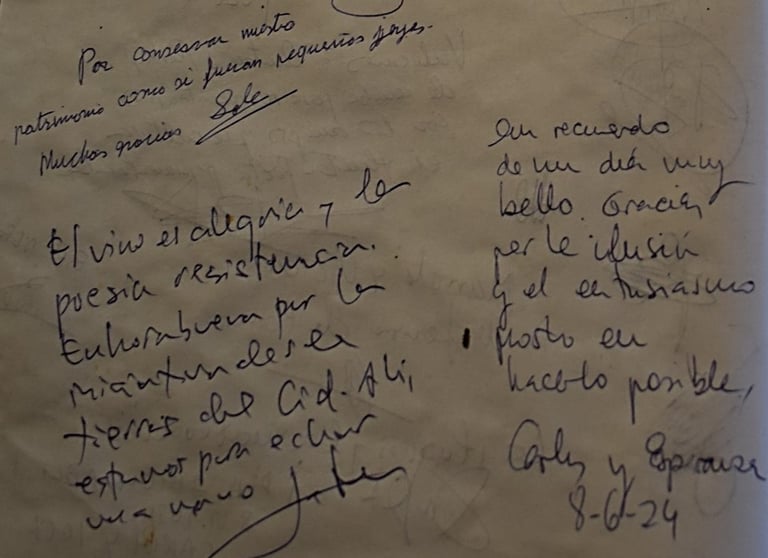 Por conservar nuestro
patrimonio como si fueran pequeñas joyas.
Muchas gracias Sole
El vino es alegria y la
poesia resistencia.
Enhorabuena por la
en
tierras del Cid. Ahi,
estamos para echar
una mano
En recuerdo
de un día muy
bello. Gracias
por la ilusión
y el entusiasmo
puesto en
hacerlo posible,
Carlos y Esperanza
8-6-24